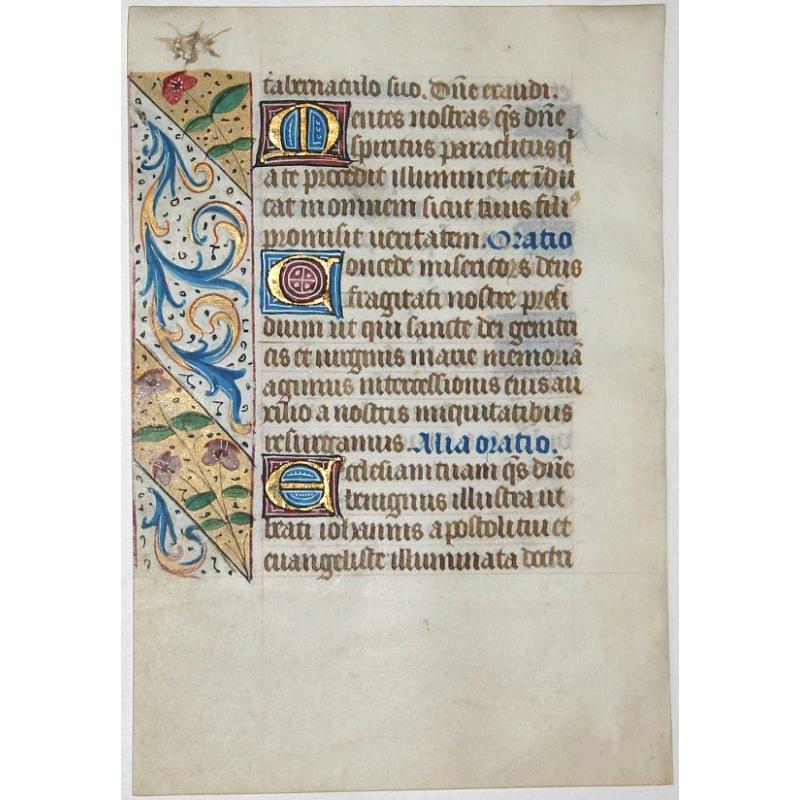 tabernaculo suo. Dñe exaudi.
Mentes nostras q̃s dñe
spiritus paraclitus q̃
a te procedit illuminet et īdu
cat in omnem sicut tuus filiꝰ
promisit ueritatem. Oratio
Concede misericors deus
fragitati nostre presi
dium ut qui sancte dei genitri
cis et uirginis marie memoriā
agimus intercessionis eius au
xilio a nostris iniquitatibus
resurgamus. Alia oratio.
Ecclesiam tuam q̃s dñe
benignus illustra ut
beati iohannis apostoli tui et
euangeliste illuminata doctri